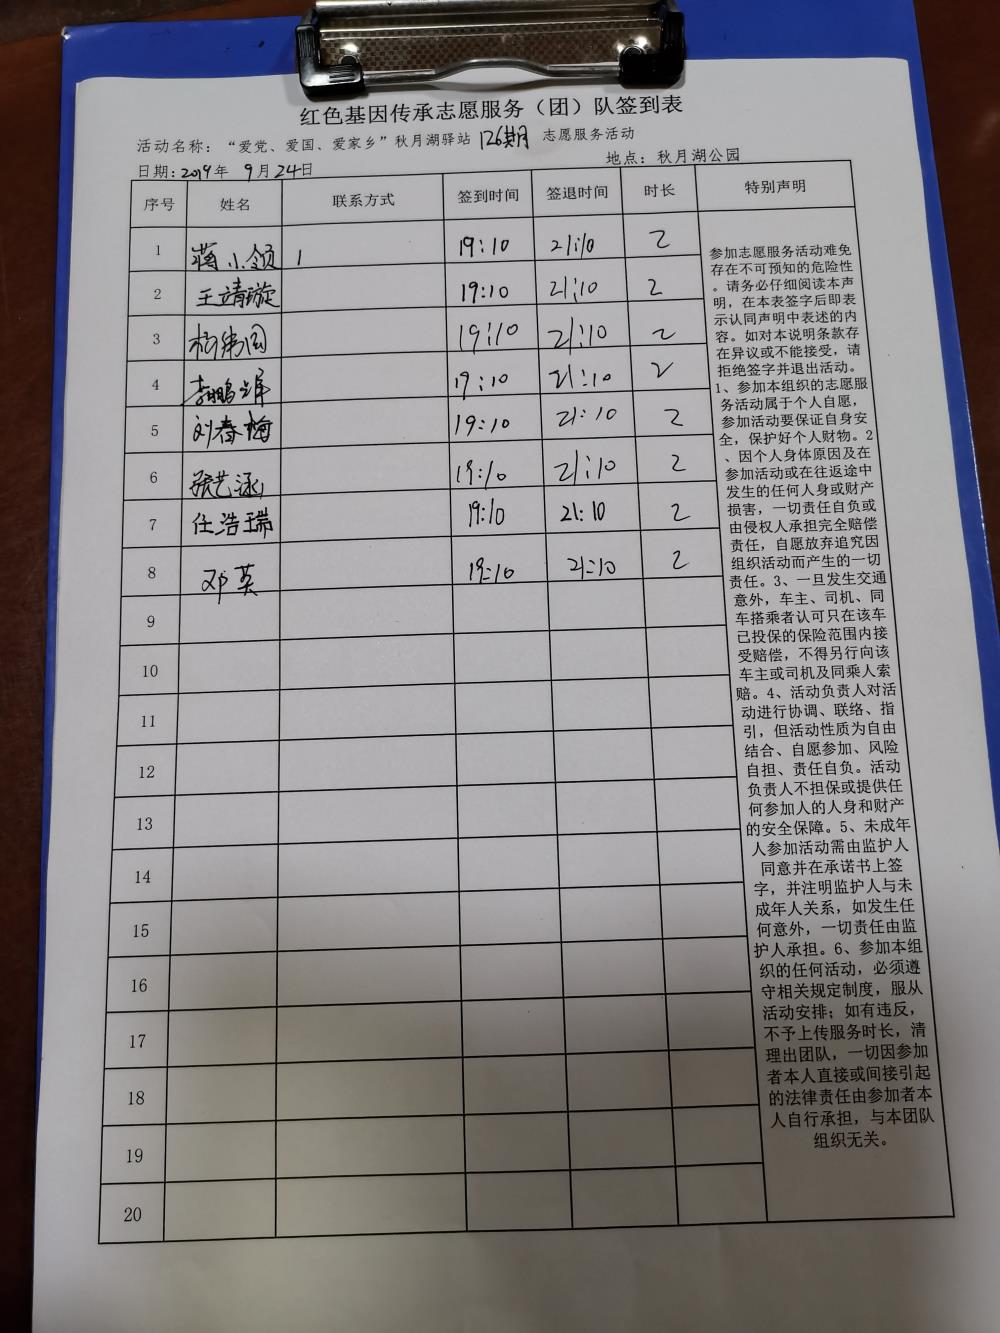 红色基因传承志愿服务（团）队签到表
活动名称：“爱党、爱国、爱家乡”秋月湖驿站 126期 志愿服务活动
日期：2019年 9月24日 地点：秋月湖公园
序号 姓名 联系方式 签到时间 签退时间 时长 特别声明
1 蒋小领 1 19:10 21:10 2
2 王靖璇 19:10 21:10 2
3 19:10 21:10 2
4 李鹏 19:10 21:10 2
5 刘春梅 19:10 21:10 2
6 张艺涵 19:10 21:10 2
7 任浩瑞 19:10 21:10 2
8 邓英 19:10 21:10 2
9
10
11
12
13
14
15
16
17
18
19
20
参加志愿服务活动难免
存在不可预知的危险性
。请务必仔细阅读本声
明，在本表签字后即表
示认同声明中表述的内
容。如对本说明条款存
在异议或不能接受，请
拒绝签字并退出活动。
1、参加本组织的志愿服
务活动属于个人自愿，
参加活动要保证自身安
全，保护好个人财物。2
、因个人身体原因及在
参加活动或在往返途中
发生的任何人身或财产
损害，一切责任自负或
由侵权人承担完全赔偿
责任，自愿放弃追究因
组织活动而产生的一切
责任。3、一旦发生交通
意外，车主、司机、同
车搭乘者认可只在该车
已投保的保险范围内接
受赔偿，不得另行向该
车主或司机及同乘人索
赔。4、活动负责人对活
动进行协调、联络、指
引，但活动性质为自由
结合、自愿参加、风险
自担、责任自负。活动
负责人不担保或提供任
何参加人的人身和财产
的安全保障。5、未成年
人参加活动需由监护人
同意并在承诺书上签
字，并注明监护人与未
成年人关系，如发生任
何意外，一切责任由监
护人承担。6、参加本组
织的任何活动，必须遵
守相关规定制度，服从
活动安排；如有违反，
不予上传服务时长，清
理出团队，一切因参加
者本人直接或间接引起
的法律责任由参加者本
人自行承担，与本团队
组织无关。